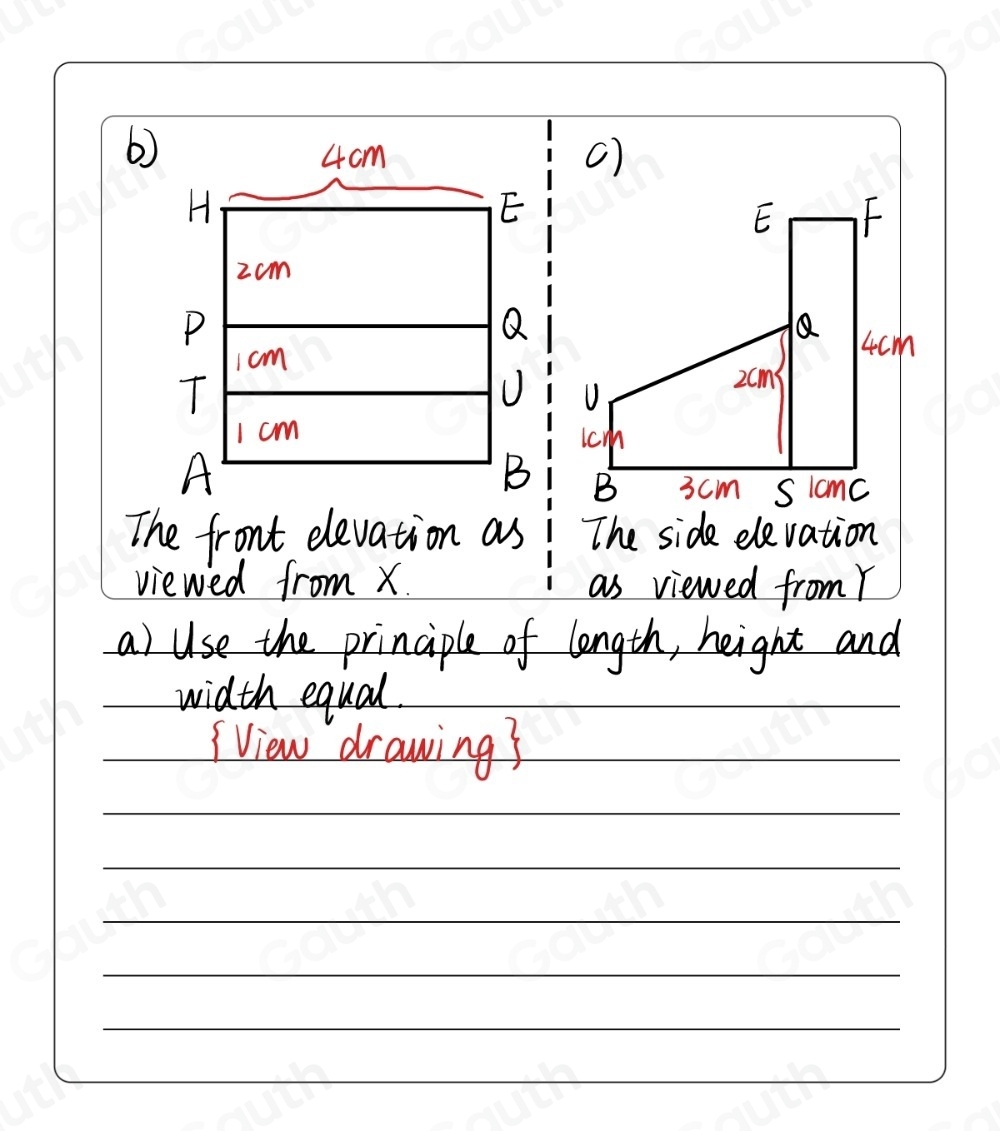 b)
4cm
H
E
2cm
P
Q
1cm
T
U
1 cm
A
B
The front elevation as
viewed from X.
c)
E
F
Q
4cm
2cm
U
1cm
B
3cm
S
1cm
C
The side elevation
as viewed from Y
a) Use the principle of length, height and
width equal.
{View drawing}
Gauth